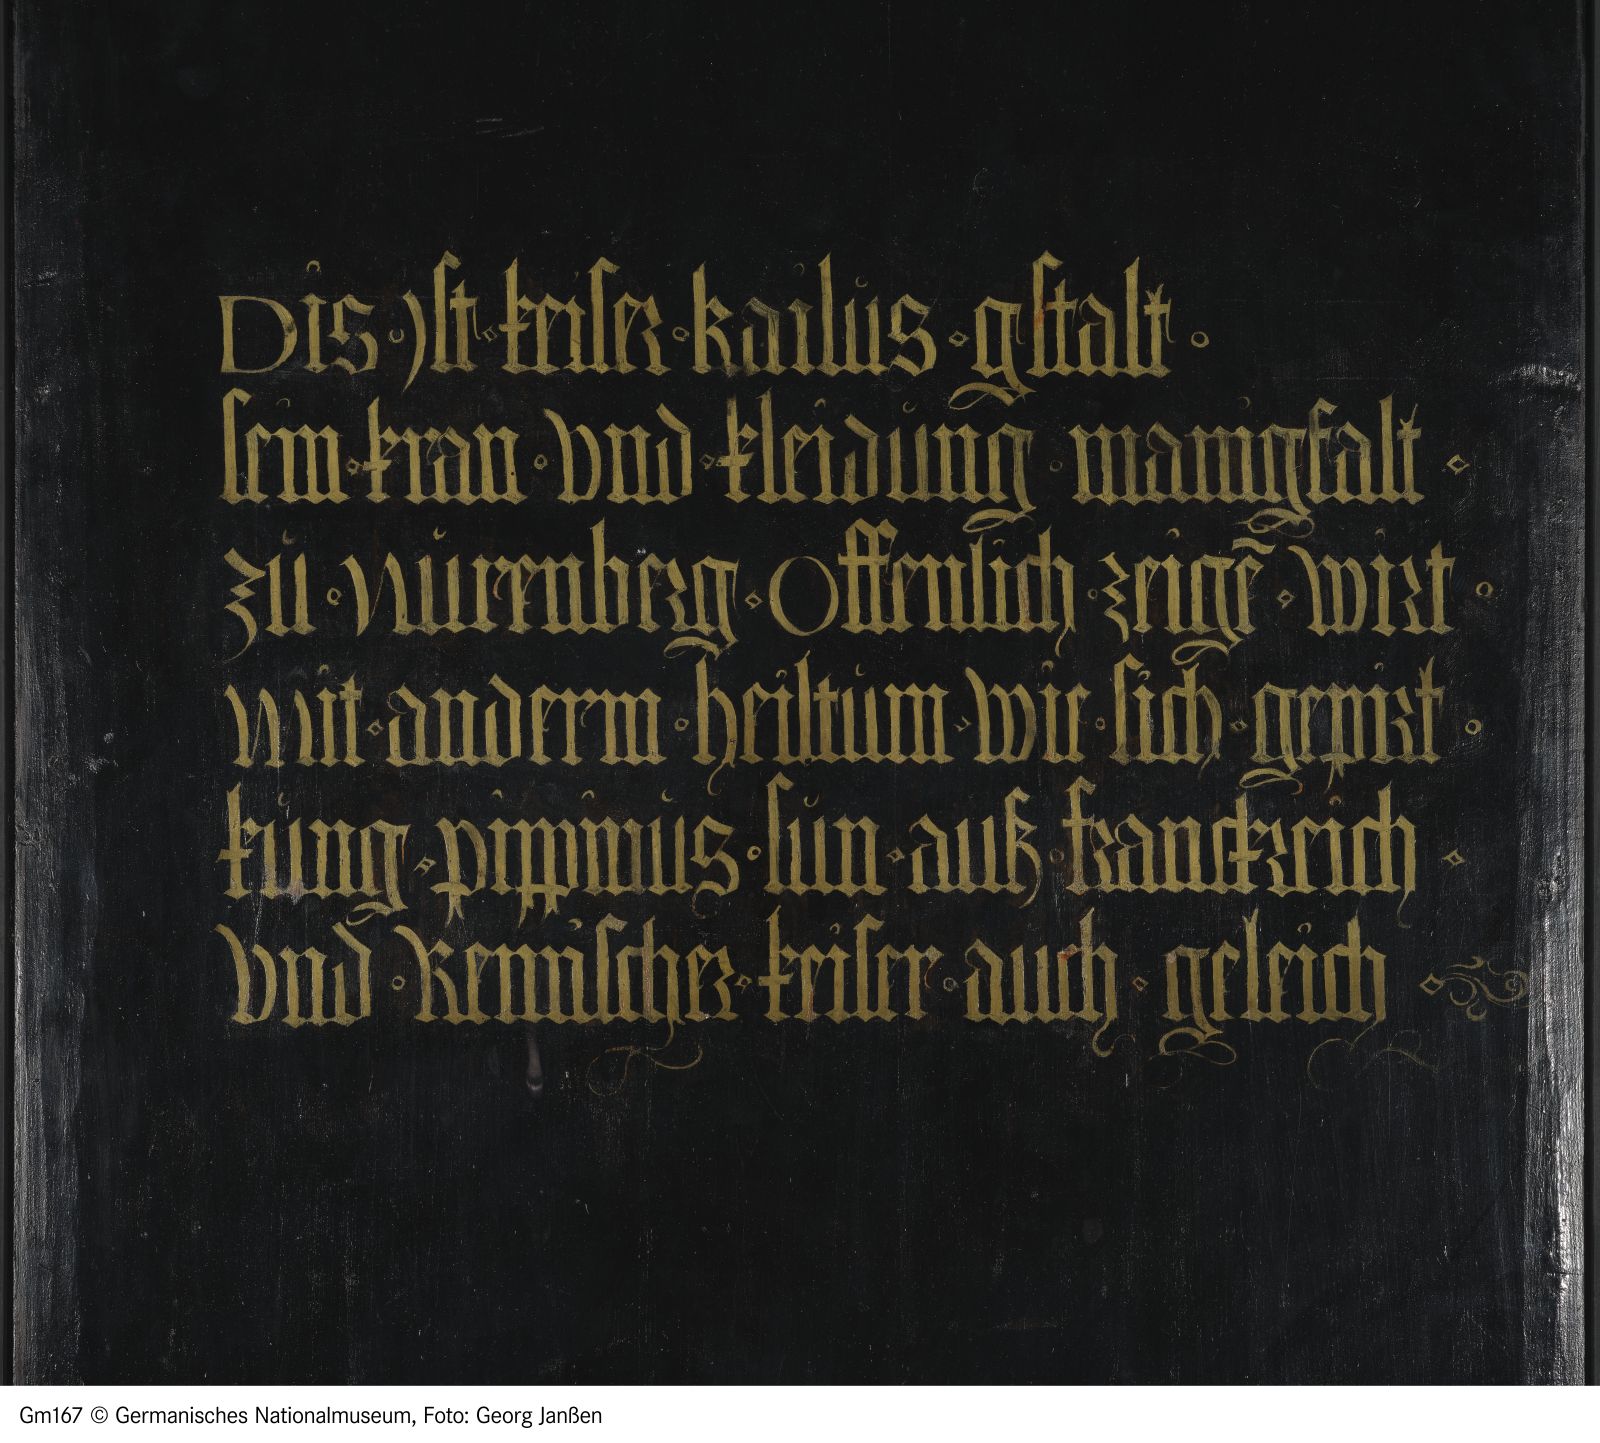 Dis · ist · keiser · karlus · gstalt ·
sein · kran · vnd · kleidung · manigfalt ·
zu · Nurenberg · Offenlich · zeigē · wirt ·
Mit · anderm · heiltum · wie · sich · gepirt ·
kung · pippinus · sun · auß · franckreich ·
vnd · Remischer · keiser · auch · geleich
Gm167 © Germanisches Nationalmuseum, Foto: Georg Janßen